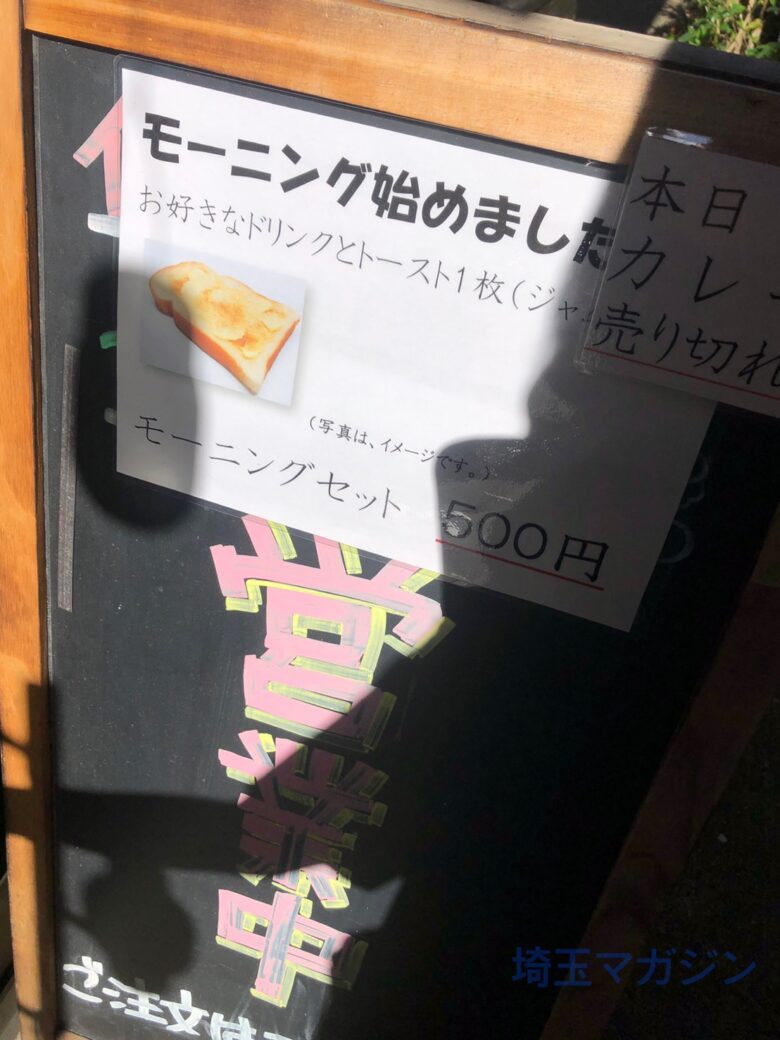 モーニング始めました
お好きなドリンクとトースト1枚(ジャ
(写真は、イメージです。)
モーニングセット 500円
本日
カレ
売り切れ
営業中
ご注文は
埼玉マガジン